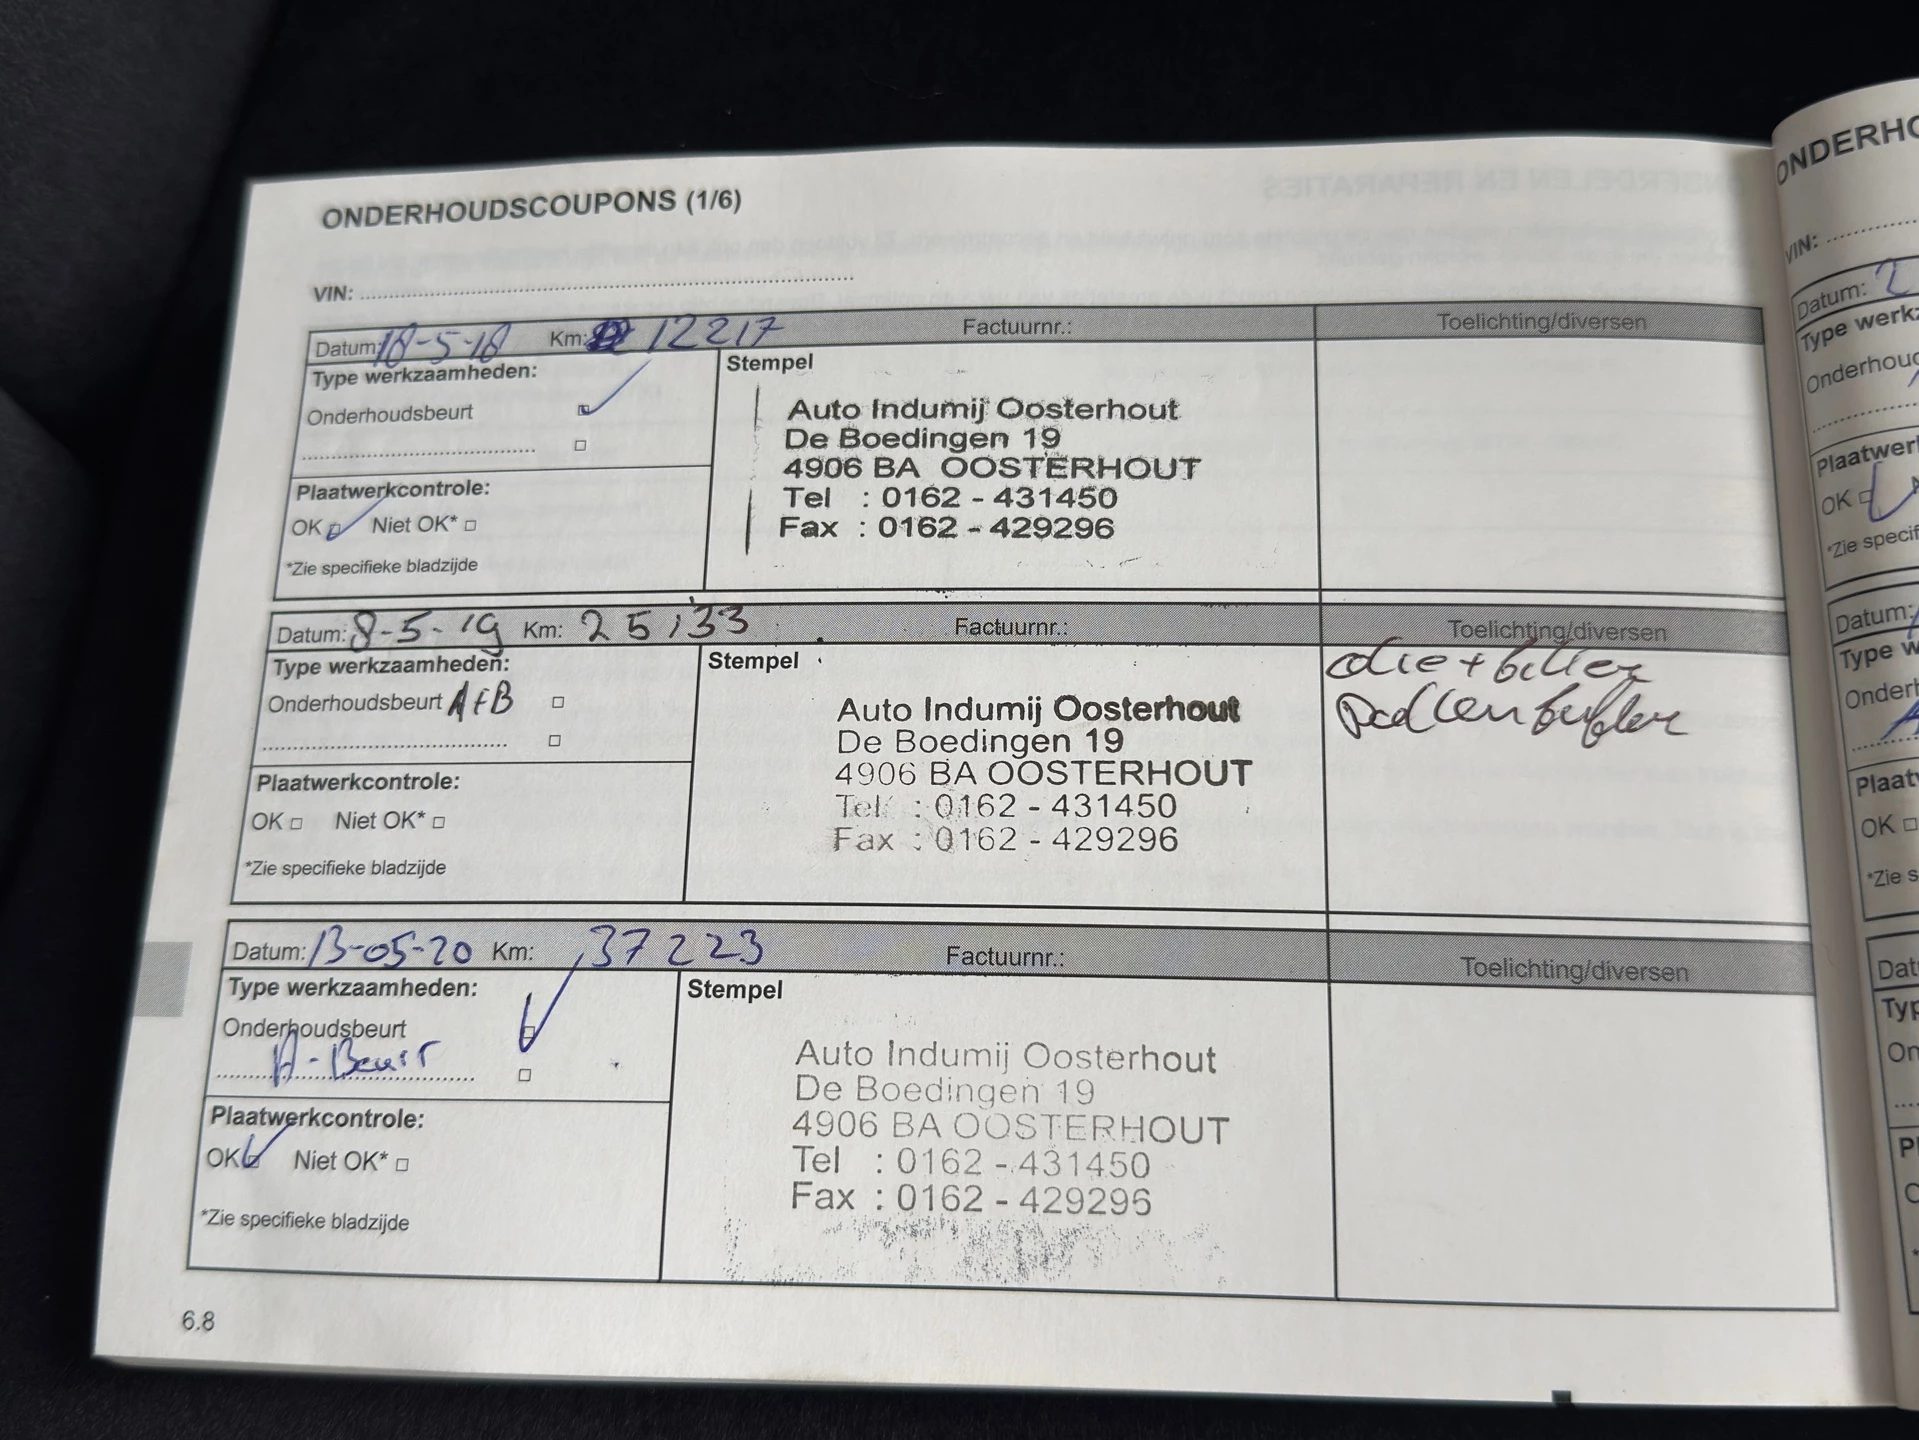 ONDERHOUDSCOUPONS (1/6)
VIN:
Datum: 18-5-18 Km: 12217 Factuurnr.: Toelichting/diversen
Type werkzaamheden:
Stempel
Onderhoudsbeurt
Auto Indumij Oosterhout
De Boedingen 19
4906 BA OOSTERHOUT
Tel : 0162 - 431450
Fax : 0162 - 429296
Plaatwerkcontrole:
OK Niet OK*
*Zie specifieke bladzijde
Datum: 8-5-19 Km: 25133 Factuurnr.: Toelichting/diversen
Type werkzaamheden:
Stempel
Onderhoudsbeurt A+B
Auto Indumij Oosterhout
De Boedingen 19
4906 BA OOSTERHOUT
Tel : 0162 - 431450
Fax : 0162 - 429296
olie + filter
Plaatwerkcontrole:
OK Niet OK*
*Zie specifieke bladzijde
Datum: 13-05-20 Km: 37223 Factuurnr.: Toelichting/diversen
Type werkzaamheden:
Stempel
Onderhoudsbeurt
A-Beurt
Auto Indumij Oosterhout
De Boedingen 19
4906 BA OOSTERHOUT
Tel : 0162 - 431450
Fax : 0162 - 429296
Plaatwerkcontrole:
OK Niet OK*
*Zie specifieke bladzijde
6.8
VIN:
Datum: 2
OK
Datum:
OK
*Zie